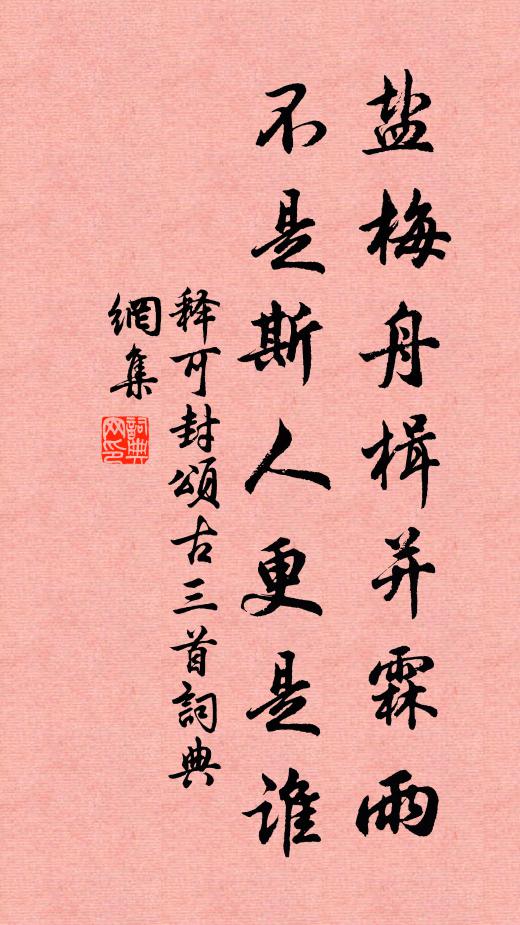 盐梅舟楫并霖雨
不是斯人更是谁
释可封頌古三首詞典
網集
詞典网印